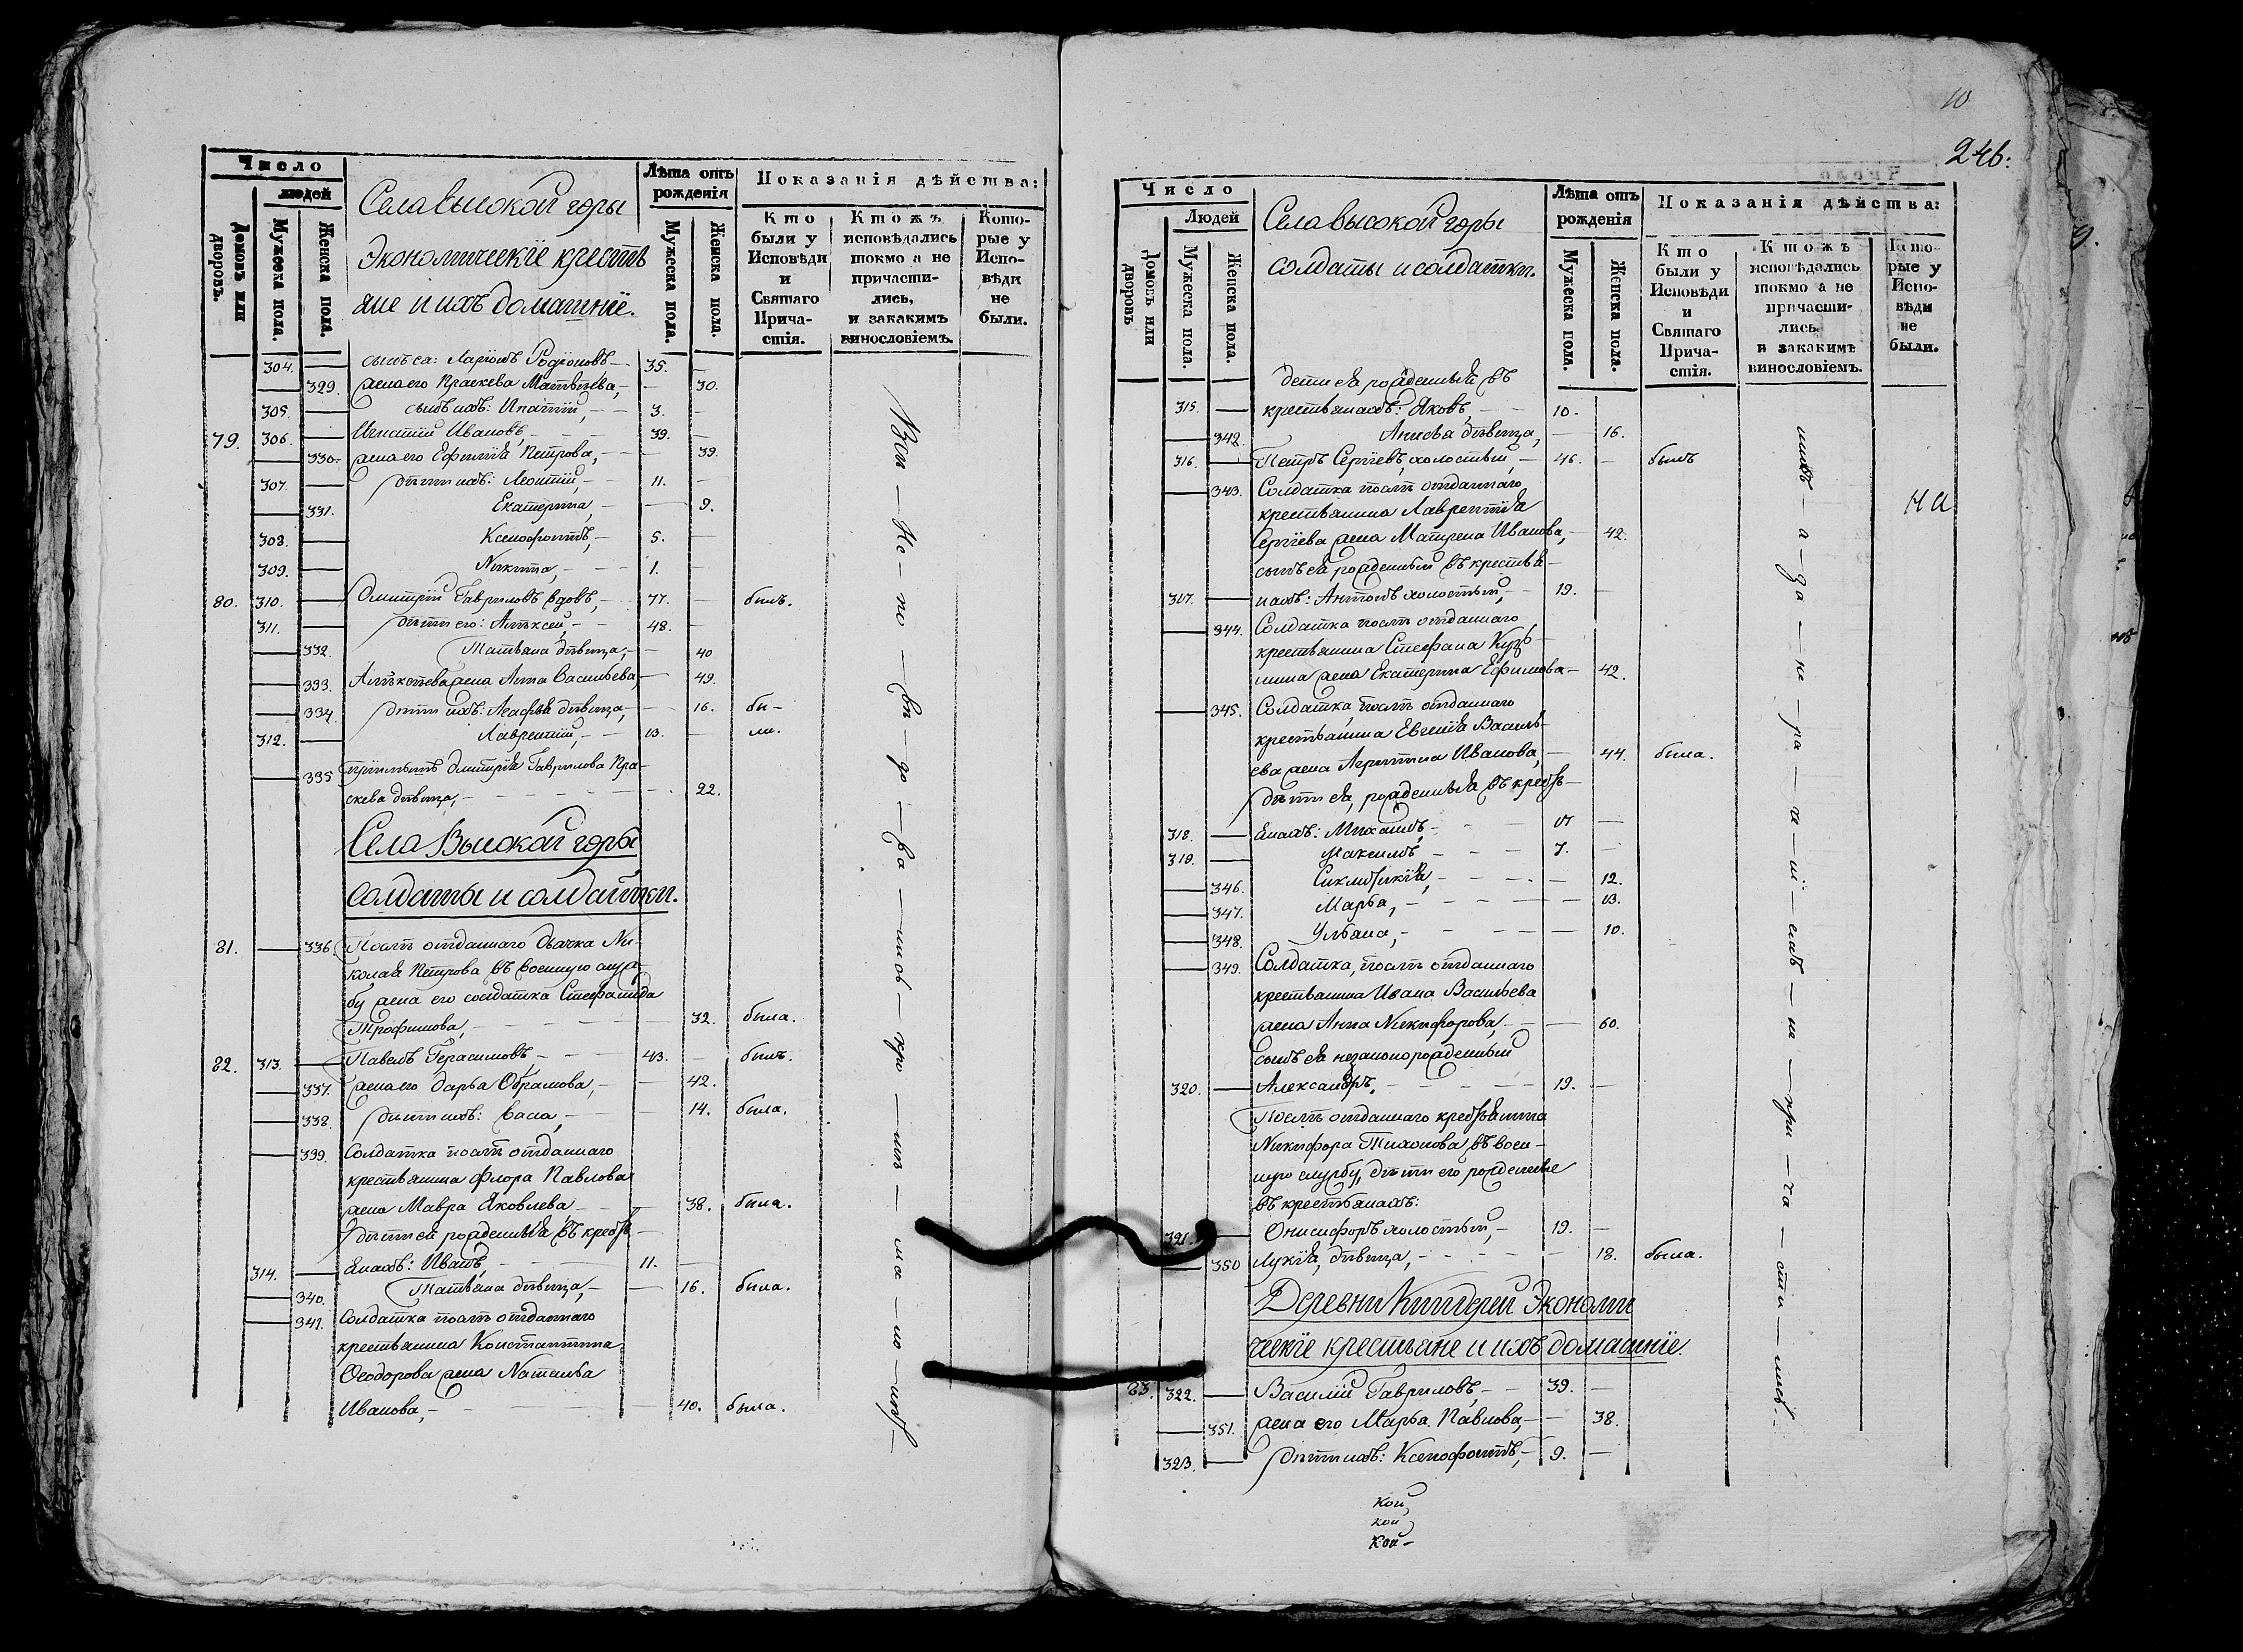 Число
людей
Домовъ или дворовъ.
Мужеска пола.
Женска пола.
Села высокой горы
Экономическїе крестья
яне и ихъ домашнїе.
Лѣта отъ рожденія
Мужеска пола.
Женска пола.
Показанія дѣйства:
Кто были у Исповѣди и Святаго Прича- стія.
Ктожъ исповѣдались токмо а не причасти- лись, и закакимъ винословіемъ.
Кото- рые у Испо- вѣди не были.
304. — сынъ са: Ларїонъ Родїоновъ — 35. —
— 329. жена его Праскева Матвѣева, — — 30.
305. — сынъ ихъ: Ипатїй, — — 3. —
79. 306. — Игнатїй Ивановъ, — — 39. —
— 330. жена его Ефимїя Петрова, — — 39.
307. — дѣти ихъ: Леонтїй, — 11. —
— 331. Екатерина, — — 9.
308. — Ксенофонтъ, — 5. —
309. — Никита, — — 1. —
80. 310. — Дмитрїй Гавриловъ вдовъ, — 77. — былъ.
311. — дѣти его: Алѣксей, — — 48. —
— 332. Татьяна дѣвица, — — 40
— 333. Алѣксѣева жена Анна Васильева, — 49.
— 334. дѣти ихъ: Агафья дѣвица, — — 16. бы-
312. — Лаврентїй, — — 13. — ли.
— 335 прїимышъ Дмитрїя Гаврилова Пра-
скева дѣвица, — — — 22.
Села Высокой горы
солдаты и солдатки.
81. — 336. Послѣ отданнаго дьячка Ни-
колая Петрова въ военную служ-
бу жена его солдатка Стефанида
Трофимова, — — — 32. была.
82. 313. — Павелъ Герасимовъ — — 43. — былъ.
— 337. жена его Дарья Обрамова, — — 42.
— 338. дѣти ихъ: Васа, — — 14. была.
— 339. Солдатка послѣ отданнаго
крестьянина Флора Павлова
жена Мавра Яковлева — — 38. была.
дѣти ея рожденныя въ кресть-
314. — янахъ: Иванъ, — — 11. —
— 340. Татьяна дѣвица, — — 16. была.
— 341. Солдатка послѣ отданнаго
крестьянина Константина
Ѳеодорова жена Наталья
Ивановa, — — — 40. была.
10
246.
Число
Людей
Домовъ или дворовъ
Мужеска пола.
Женска пола.
Села высокой горы
солдаты и солдатки.
Лѣта отъ рожденія
Мужеска пола.
Женска пола.
Показанія дѣйства:
Кто были у Исповѣди и Святаго Прича- стія.
Ктожъ исповѣдались токмо а не причасти- лись, и закакимъ винословіемъ.
Кото- рые у Испо- вѣди не были.
дѣти ея рожденныя въ
315. — крестьянахъ: Яковъ, — — 10. —
— 342. Анисья дѣвица, — 16.
316. — Петръ Сергїевъ, холостый, — 46. — былъ
— 343. Солдатка послѣ отданнаго
крестьянина Лаврентїя
Сергїева жена Матрена Иванова, — 42.
сынъ ея рожденный въ крестья-
317. — нахъ: Антонъ холостый, — 19. —
— 344. Солдатка послѣ отданнаго
крестьянина Стефана Кузь-
мина жена Екатерина Ефимова — 42.
— 345. Солдатка, послѣ отданнаго
крестьянина Евгенїя Василь-
ева жена Агрипина Иванова, — 44. была.
дѣти ея, рожденныя въ кресть-
318. — янахъ: Михаилъ, — — 17 —
319. — Максимъ — — 7. —
— 346. Синклитикїя, — — — 12.
— 347. Марья, — — — 13.
— 348. Ульяна, — — — 10.
— 349. Солдатка, послѣ отданнаго
крестьянина Ивана Васильева
жена Анна Никифорова, — — 60.
сынъ ея незаконорожденный
320. — Александръ, — — 19. —
Послѣ отданнаго крестьянина
Никифора Тихонова въ воен-
ную службу, дѣти его рожденные
въ крестьянахъ:
321. — Онисифоръ холостый, — 19. —
— 350 Лукїя, дѣвица, — — 18. была.
Деревни Киндерей Экономи
ческїе крестьяне и ихъ домашнїе.
83. 322. — Василїй Гавриловъ, — 39. —
— 351. жена его Марья Павлова, — — 38.
323. — дѣти ихъ: Ксенофонтъ, — 9. —
кой
кой
кой-